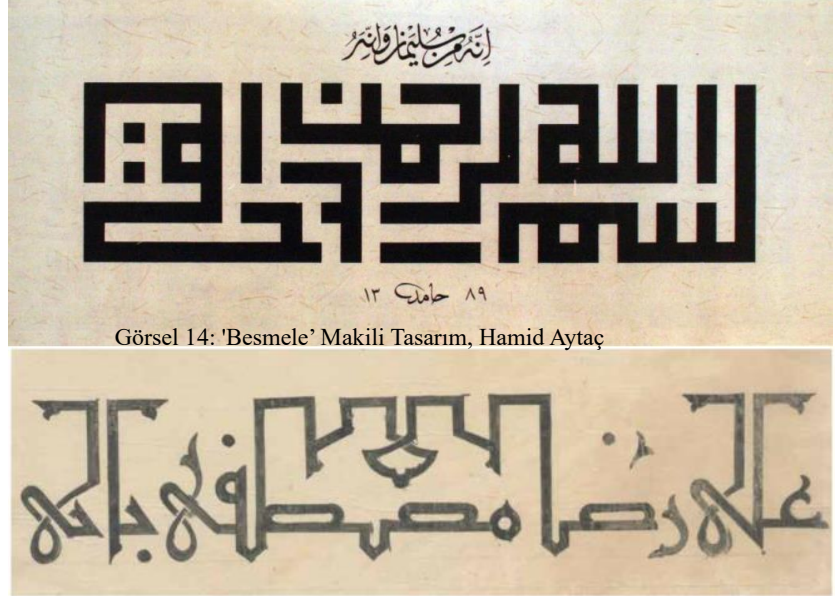 إنه من سليمان وإنه
بسم الله الرحمن الرحيم
٨٩ حامد ١٣
Görsel 14: 'Besmele’ Makili Tasarım, Hamid Aytaç
على رضا مصطفى